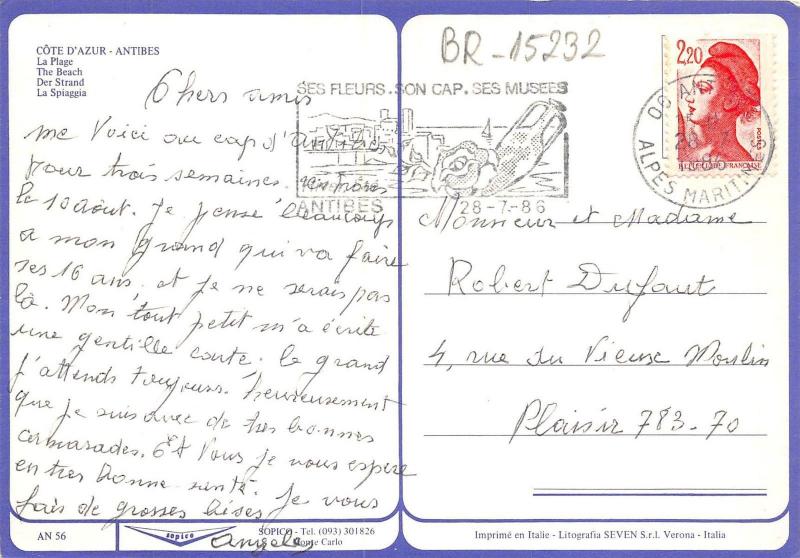 CÔTE D'AZUR - ANTIBES
La Plage
The Beach
Der Strand
La Spiaggia
Chers amis
me voici au cap d'Antibes
pour trois semaines.
le 10 août. Je pense beaucoup
a mon grand qui va faire
ses 16 ans, et je ne serais pas
là. Mon tout petit m'a écrite
une gentille carte. le grand
j'attends toujours. heureusement
que je suis avec de tres bonnes
camarades. Et vous je vous espere
en tres bonne santé. Je vous
fais de grosses bises.
Angele
AN 56
sopico
SOPICO - Tel. (093) 301826
Monte Carlo
BR-15232
SES FLEURS. SON CAP. SES MUSEES
ANTIBES
28-7-86
2,20
POSTES
REPUBLIQUE FRANÇAISE
06 ANTIBES
ALPES MARITIMES
Monsieur et Madame
Robert Dufaut
4, rue du Vieux Moulin
Plaisir 783-70
Imprimé en Italie - Litografia SEVEN S.r.l. Verona - Italia